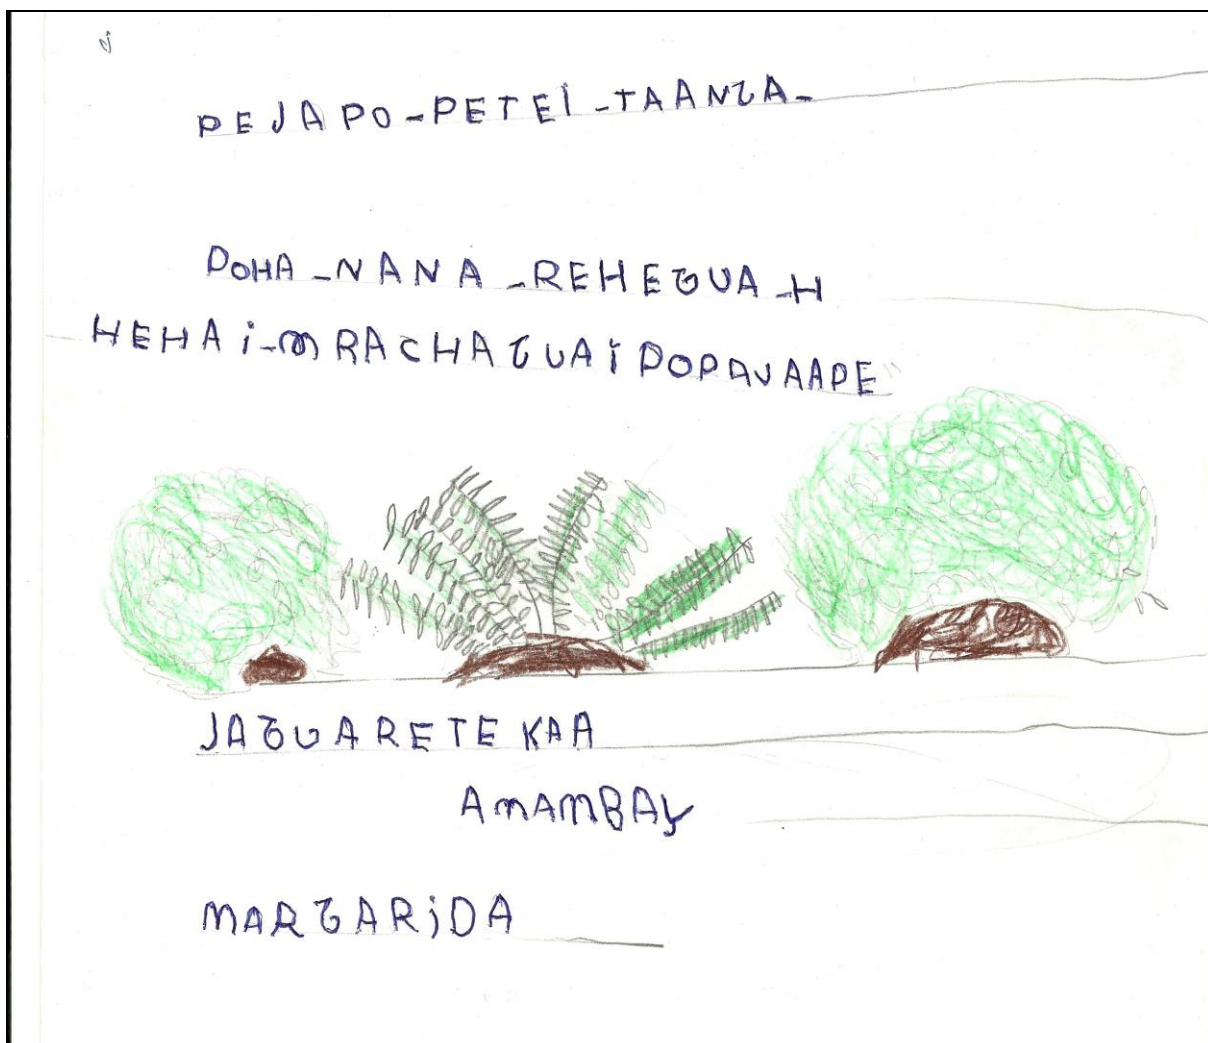 PEJAPO-PETEI-TAANGA-
POHA-NANA-REHEGUA-H
HEHAI-MRACHAGUAIPOPAVAAPE"
JAGUARETE KAA
AMAMBAY
MARGARIDA